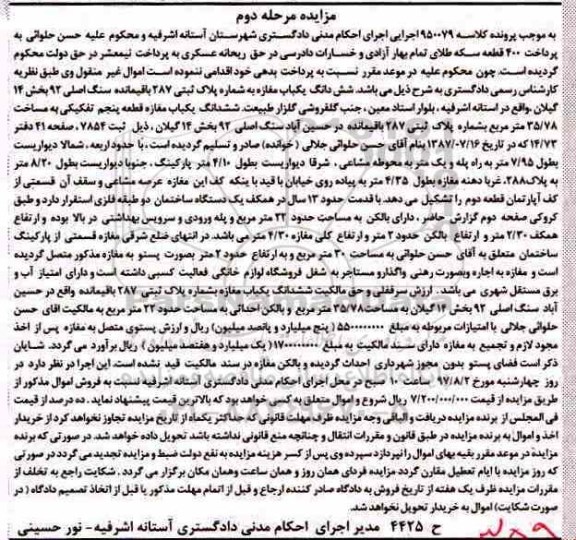 مزایده مرحله دوم
به موجب پرونده کلاسه ۹۵۰۰۷۹ اجرایی اجرای احکام مدنی دادگستری شهرستان آستانه اشرفیه و محکوم علیه حسن حلوانی به
پرداخت ۴۰۰ قطعه سکه طلای تمام بهار آزادی و خسارات دادرسی در حق ریحانه عسکری به پرداخت نیمعشر در حق دولت محکوم
گردیده است. چون محکوم علیه در موعد مقرر نسبت به پرداخت بدهی خود اقدامی ننموده است اموال غیر منقول وی طبق نظریه
کارشناس رسمی دادگستری به شرح ذیل می باشد. شش دانگ یکباب مغازه به شماره پلاک ثبتی ۲۸۷ باقیمانده سنگ اصلی ۹۲ بخش ۱۴
گیلان .واقع در استانه اشرفیه ، بلوار استاد معین ، جنب گلفروشی گلزار طبیعت. ششدانگ یکباب مغازه قطعه پنجم تفکیکی به مساحت
۳۵/۷۸ متر مربع بشماره پلاک ثبتی ۲۸۷ باقیمانده در حسین آباد سنگ اصلی ۹۲ بخش ۱۴ گیلان ، ذیل ثبت ۷۸۵۴ ، صفحه ۴۱ دفتر
۱۴/۷۳ که در تاریخ ۱۳۸۷/۰۷/۱۶ بنام آقای حسن حلوانی جلالی ( خوانده) صادر و تسلیم گردیده است ، با حدود اربعه ، شمالا دیواریست
بطول ۷/۹۵ متر به راه پله و یک متر به محوطه مشاعی ، شرقا دیواریست بطول ۴/۱۰ متر پارکینگ ، جنوبا دیواریست بطول ۸/۲۰ متر
به پلاک ۲۸۸، غربا دهنه مغازه بطول ۴/۳۵ متر به پیاده روی خیابان با قید با ینکه کف این مغازه عرصه مشاعی و سقف آن قسمتی از
کف آپارتمان قطعه دوم را تشکیل می دهد. با قدمت حدود ۱۳ سال در همکف یک دستگاه ساختمان دو طبقه فلزی استقرار دارد و طبق
کروکی صفحه دوم گزارش حاضر ، دارای بالکن به مساحت حدود ۲۲ متر مربع و پله ورودی و سرویس بهداشتی در بالا بوده و ارتفاع
همکف ۲/۳۰ متر و ارتفاع بالکن حدود ۲ متر و ارتفاع کلی مغازه ۴/۳۰ متر می باشد. در انتهای ضلع شرقی مغازه قسمتی از پارکینگ
ساختمان متعلق به آقای حسن حلوانی به مساحت ۳۰ متر مربع و به ارتفاع حدود ۲ متر بصورت پستو به مغازه مذکور متصل گردیده
است و مغازه به اجاره وبصورت رهنی واگذارو مستاجر به شغل فروشگاه لوازم خانگی فعالیت کسبی داشته است و دارای امتیاز آب و
برق مستقل شهری می باشد . ارزش سرقفلی و حق مالکیت ششدانگ یکباب مغازه بشماره پلاک ثبتی ۲۸۷ باقیمانده واقع در حسین
آباد سنگ اصلی ۹۲ بخش ۱۴ گیلان به مساحت ۳۵/۷۸ متر مربع و بالکن احداثی به مساحت حدود ۲۲ متر مربع به مالکیت اقای حسن
حلوانی جلالی با امتیازات مربوطه به مبلغ ۵۵۰۰۰۰۰۰۰۰ ( پنج میلیارد و پانصد میلیون) ریال و ارزش پستوی متصل به مغازه پس از اخذ
مجوز لازم و تجمیع به مغازه دارای سند مالکیت به مبلغ ۱۷۰۰۰۰۰۰۰۰( یک میلیارد و هفتصد میلیون ) ریال برآورد می گردد. شایان
ذکر است فضای پستو بدون مجوز شهرداری احداث گردیده و بالکن مغازه در سند مالکیت قید نشده است. این اجرا در نظر دارد در
روز چهارشنبه مورخ ۹۷/۸/۲ ساعت ۱۰ صبح در محل اجرای احکام مدنی دادگستری آستانه اشرفیه نسبت به فروش اموال مذکور از
طریق مزایده از قیمت ۷/۲۰۰/۰۰۰/۰۰۰ ریال شروع و اموال متعلق به کسی خواهد بود که بالاترین قیمت پیشنهاد نماید . ده درصد از قیمت
فی المجلس از برنده مزایده دریافت و الباقی وجه مزایده ظرف مهلت قانونی که حداکثر یکماه از تاریخ مزایده تجاوز نخواهد کرد از خریدار
اخذ و اموال به برنده مزایده در طبق قانون و مقررات انتقال و چنانچه منع قانونی نداشته باشد تحویل داده خواهد شد. در صورتی که برنده
مزایده در موعد مقرر بقیه بهای اموال را نپردازد سپرده وی پس از کسر هزینه مزایده به نفع دولت ضبط و مزایده تجدید می گردد در صورتی
که روز مزایده با ایام تعطیل مقارن گردد مزایده فردای همان روز و همان ساعت وهمان مکان برگزار می گردد . شکایت راجع به تخلف از
مقررات مزایده ظرف یک هفته از تاریخ فروش به دادگاه صادر کننده ارجاع و قبل از اتمام مهلت مذکور یا قبل از اتخاذ تصمیم دادگاه ( در
صورت شکایت) اموال به خریدار تحویل نخواهد شد.
ح ۴۴۲۵ مدیر اجرای احکام مدنی دادگستری آستانه اشرفیه- نور حسینی